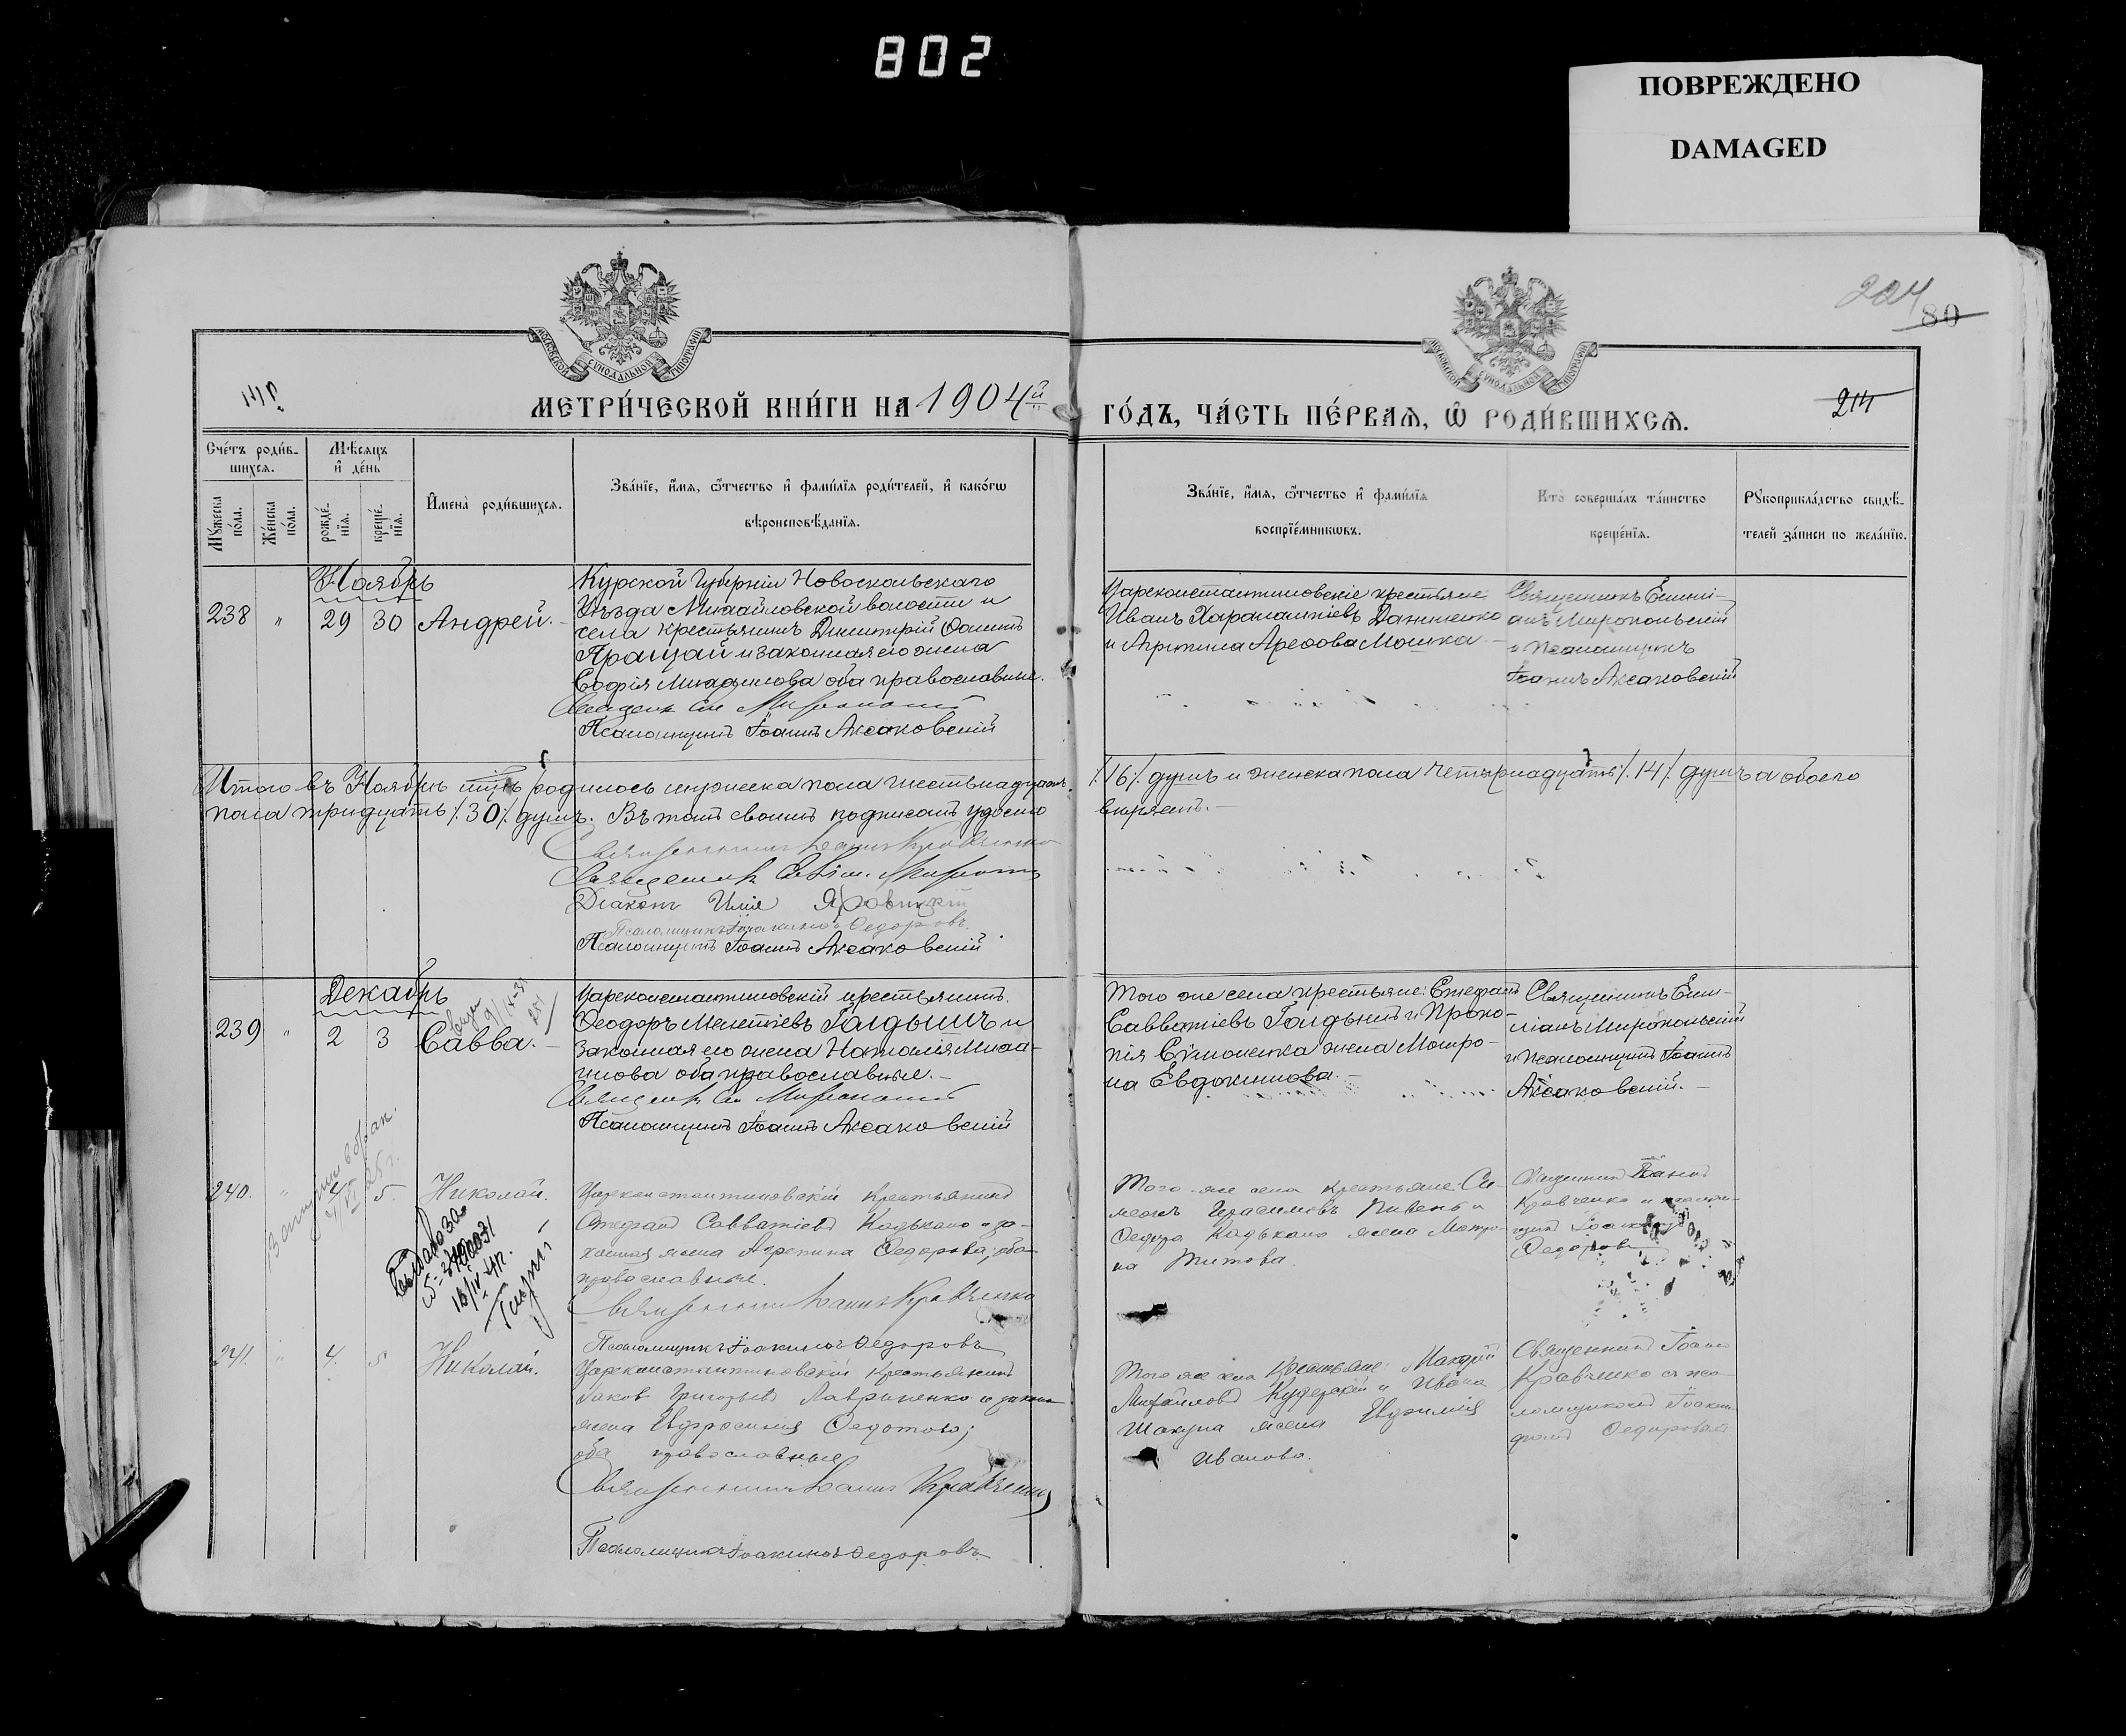 802
ПОВРЕЖДЕНО
DAMAGED
224
80
214
МОСКОВСКОЙ СѴНОДАЛЬНОЙ ТИПОГРАФІИ
МОСКОВСКОЙ СѴНОДАЛЬНОЙ ТИПОГРАФІИ
МЕТРИ́ЧЕСКОЙ КНИ́ГИ НА 1904й
ГО́ДЪ, ЧА́СТЬ ПЕ́РВАѦ, Ѿ РОДИ́ВШИХСѦ.
Сче́тъ роди́в-
шихсѧ.
Мꙋ́жеска по́ла.
Же́нска по́ла.
Мѣ́сѧцъ
и҆ де́нь
рожде́-
нїѧ.
креще́-
нїѧ.
И҆мена̀ роди́вшихсѧ.
Зва́нїе, и҆́мѧ, ѻ҆́тчество и҆ фами́лїѧ роди́телей, и҆ како́гѡ
вѣроисповѣ́данїѧ.
Зва́нїе, и҆́мѧ, ѻ҆́тчество и҆ фами́лїѧ
воспрїе́мникѡвъ.
Кто̀ соверша́лъ та́инство
креще́нїѧ.
Рꙋкоприкла́дство свидѣ́-
телей за́писи по жела́нїю.
Ноябрь
238 " 29 30 Андрей.
Курской Губерніи Новооскольскаго
Уѣзда Михайловской волости и
села крестьянинъ Димитрій Ѳоминъ
Пращай и законная его жена
Софія Михаилова оба православные.
Псаломщикъ Іоаннъ Аксаковскій
Царсконстантиновскіе крестьяне
Иванъ Харалампіевъ Данченко
и Агрипина Ареѳова Мошка
Священникъ Емилі-
анъ Миропольскій
и псаломщикъ
Іоаннъ Аксаковскій
Итого въ Ноябрѣ родилось мужеска пола шестьнадцать
/.16/. душъ и женска пола четырнадцать /.14/. душъ а обоего
пола тридцать /.30/. душъ. Въ томъ своимъ подписомъ удосто
вѣряемъ.
Священникъ Іоаннъ Кравченко
Діаконъ Илія Яровицкій
Псаломщикъ Іоакимъ Ѳедоровъ
Псаломщикъ Іоаннъ Аксаковскій
Декабрь
239 " 2 3 Савва.
Царсконстантиновскій крестьянинъ
Ѳеодоръ Мелетіевъ Голдышъ и
законная его жена Наталія Миха-
илова оба православные.
Псаломщикъ Іоаннъ Аксаковскій
Того же села крестьяне: Стефанъ
Савватіевъ и Проко-
пія жена Матро-
на Евдокимова.
Священникъ Еми-
ліанъ Миропольскій
и псаломщикъ Іоаннъ
Аксаковскій.
240. " 4 5. Николай.
Царсконстантиновскій крестьянинъ
Стефанъ Савватіевъ Кадькало и за-
конная жена Агрепина Ѳедорова, оба
православные.
Священникъ Іоаннъ Кравченко
Псаломщикъ Іоакимъ Ѳедоровъ
Того-же села крестьяне: Си-
меонъ Герасимовъ Пивень и
Ѳедора Кадькало жена Матро-
на Титова.
Священникъ Іоаннъ
Кравченко и псалом-
щикъ
Ѳедоровъ
241. " 4. 5 Николай.
Царсконстантиновскій крестьянинъ
Іаковъ Григорьевъ Лавриненко и законная
жена Евфросинія Ѳедотова;
оба православные
Священникъ Іоаннъ Кравченко
Псаломщикъ Іоакимъ Ѳедоровъ
Того же села крестьяне:
Михайловъ и Ивана
Шакуна жена Евфимія
Иванова.
Священникъ Іоаннъ
Кравченко съ пса-
ломщикомъ Іоаки-
момъ Ѳедоровымъ